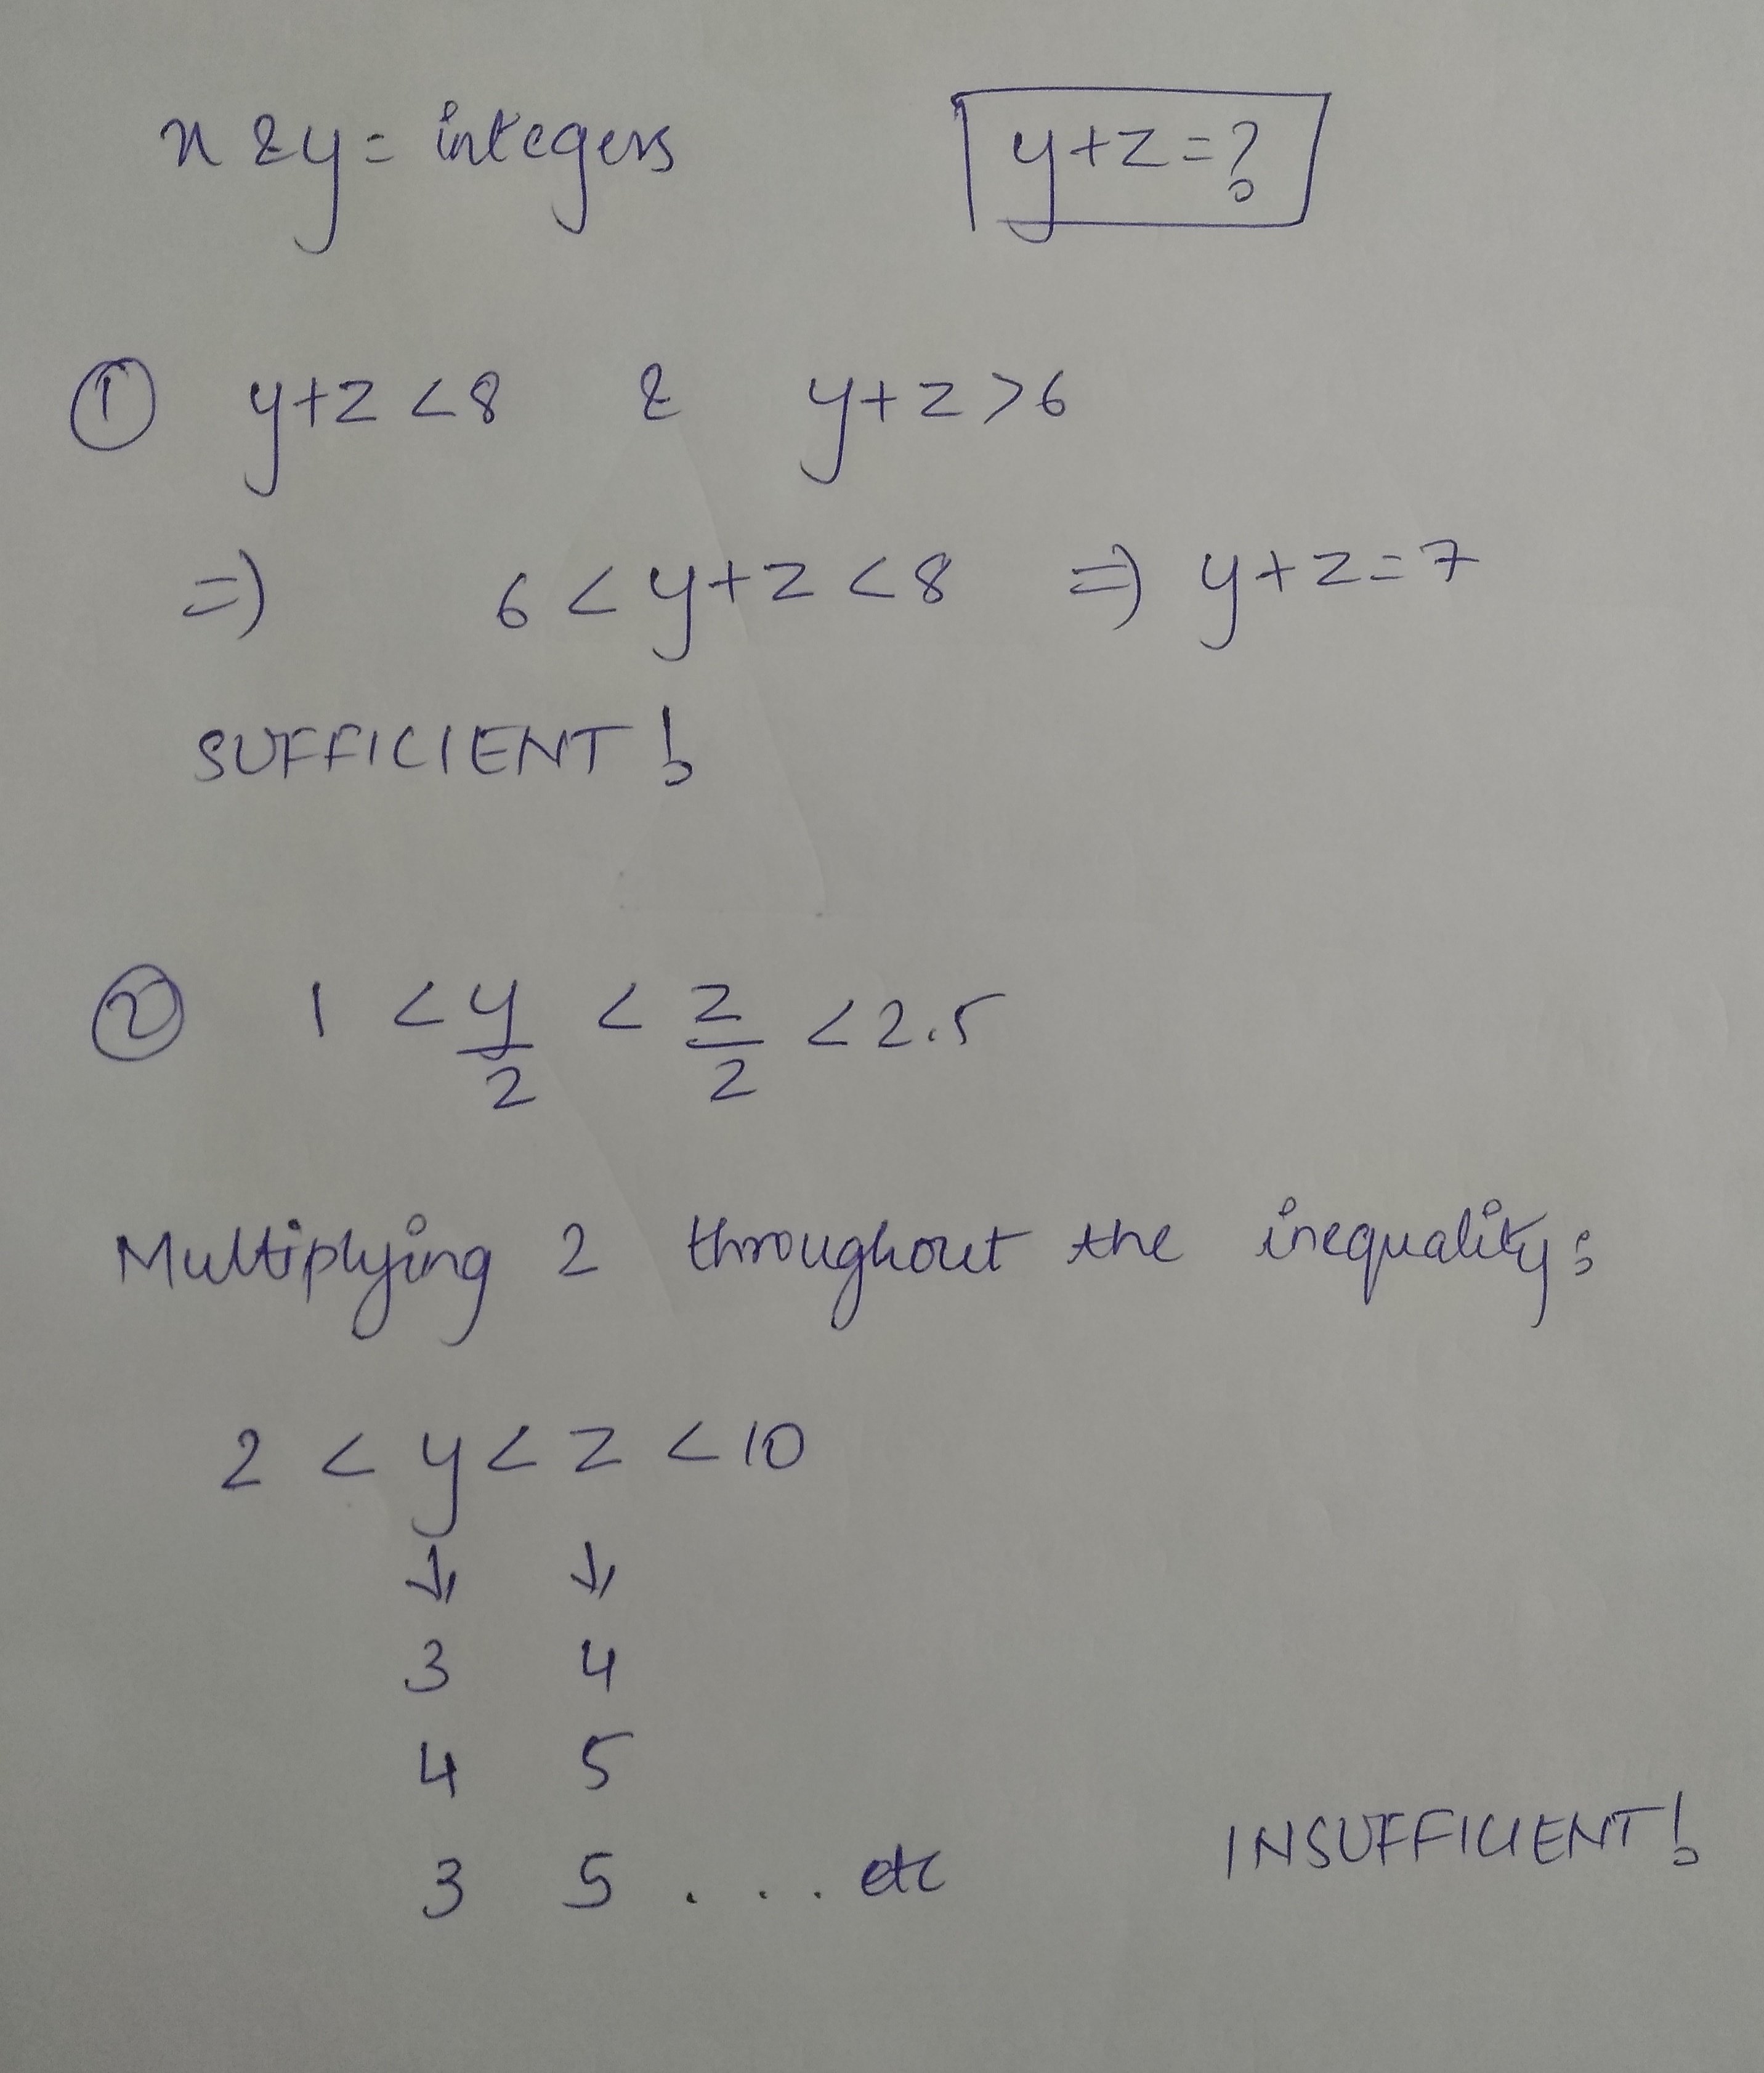 x & y = integers
y+z=?
① y+z <8 & y+z >6
=) 6 < y+z <8 =) y+z=7
SUFFICIENT !
② 1 < y/2 < z/2 <2.5
Multiplying 2 throughout the inequality:
2 < y < z < 10
↓ ↓
3 4
4 5
3 5 . . . . etc
INSUFFICIENT !